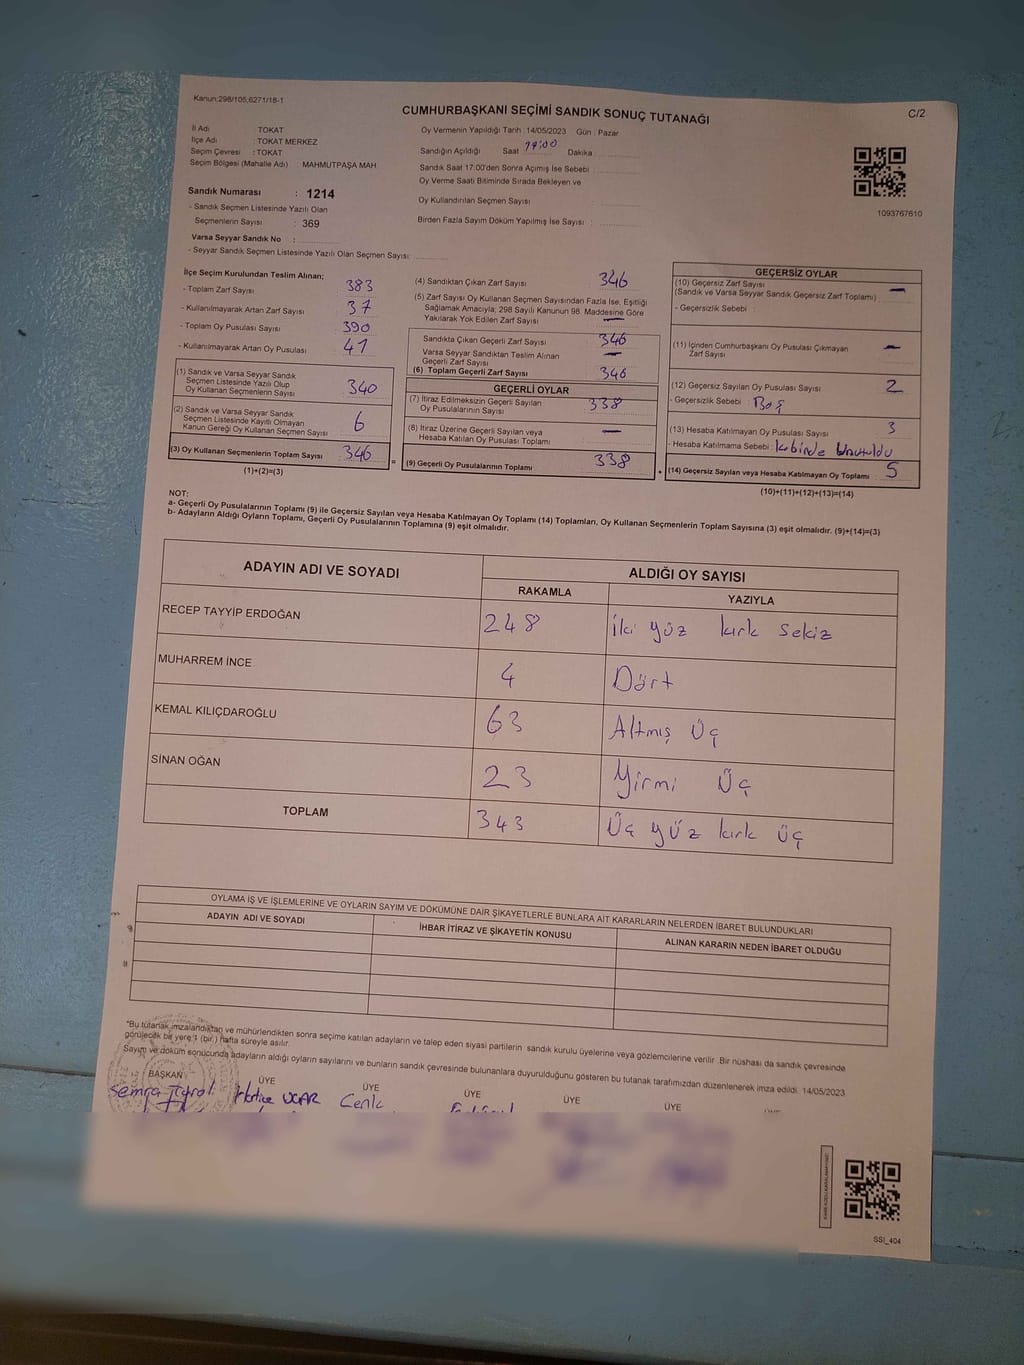 Kanun;298/105;6271/18-1
C/2
CUMHURBAŞKANI SEÇİMİ SANDIK SONUÇ TUTANAĞI
İl Adı : TOKAT
İlçe Adı : TOKAT MERKEZ
Seçim Çevresi : TOKAT
Seçim Bölgesi (Mahalle Adı) : MAHMUTPAŞA MAH.
Oy Vermenin Yapıldığı Tarih :14/05/2023 Gün : Pazar
Sandığın Açıldığı Saat Dakika
Sandık Saat 17:00'den Sonra Açımış İse Sebebi
Oy Verme Saati Bitiminde Sırada Bekleyen ve
Oy Kullandırılan Seçmen Sayısı
Birden Fazla Sayım Döküm Yapılmış İse Sayısı :
1093767610
Sandık Numarası : 1214
- Sandık Seçmen Listesinde Yazılı Olan
Seçmenlerin Sayısı : 369
Varsa Seyyar Sandık No :
- Seyyar Sandık Seçmen Listesinde Yazılı Olan Seçmen Sayısı:
İlçe Seçim Kurulundan Teslim Alınan;
- Toplam Zarf Sayısı 383
- Kullanılmayarak Artan Zarf Sayısı 37
- Toplam Oy Pusulası Sayısı 390
- Kullanılmayarak Artan Oy Pusulası 41
(1) Sandık ve Varsa Seyyar Sandık
Seçmen Listesinde Yazılı Olup
Oy Kullanan Seçmenlerin Sayısı 340
(2) Sandık ve Varsa Seyyar Sandık
Seçmen Listesinde Kayıtlı Olmayan
Kanun Gereği Oy Kullanan Seçmen Sayısı 6
(3) Oy Kullanan Seçmenlerin Toplam Sayısı 346
(1)+(2)=(3)
(4) Sandıktan Çıkan Zarf Sayısı 346
(5) Zarf Sayısı Oy Kullanan Seçmen Sayısından Fazla İse, Eşitliği
Sağlamak Amacıyla; 298 Sayılı Kanunun 98. Maddesine Göre
Yakılarak Yok Edilen Zarf Sayısı —
Sandıkta Çıkan Geçerli Zarf Sayısı 346
Varsa Seyyar Sandıktan Teslim Alınan
Geçerli Zarf Sayısı —
(6) Toplam Geçerli Zarf Sayısı 346
GEÇERLİ OYLAR
(7) İtiraz Edilmeksizin Geçerli Sayılan
Oy Pusulalarının Sayısı 338
(8) İtiraz Üzerine Geçerli Sayılan veya
Hesaba Katılan Oy Pusulası Toplamı —
= (9) Geçerli Oy Pusulalarının Toplamı 338 +
GEÇERSİZ OYLAR
(10) Geçersiz Zarf Sayısı
(Sandık ve Varsa Seyyar Sandık Geçersiz Zarf Toplamı) —
- Geçersizlik Sebebi :
(11) İçinden Cumhurbaşkanı Oy Pusulası Çıkmayan
Zarf Sayısı —
(12) Geçersiz Sayılan Oy Pusulası Sayısı 2
- Geçersizlik Sebebi : Boş
(13) Hesaba Katılmayan Oy Pusulası Sayısı 3
- Hesaba Katılmama Sebebi : kabinde Unutuldu
(14) Geçersiz Sayılan veya Hesaba Katılmayan Oy Toplamı 5
(10)+(11)+(12)+(13)=(14)
NOT:
a- Geçerli Oy Pusulalarının Toplamı (9) ile Geçersiz Sayılan veya Hesaba Katılmayan Oy Toplamı (14) Toplamları, Oy Kullanan Seçmenlerin Toplam Sayısına (3) eşit olmalıdır. (9)+(14)=(3)
b- Adayların Aldığı Oyların Toplamı, Geçerli Oy Pusulalarının Toplamına (9) eşit olmalıdır.
ADAYIN ADI VE SOYADI ALDIĞI OY SAYISI
RAKAMLA YAZIYLA
RECEP TAYYİP ERDOĞAN 248 İki yüz kırk sekiz
MUHARREM İNCE 4 Dört
KEMAL KILIÇDAROĞLU 63 Altmış Üç
SİNAN OĞAN 23 Yirmi Üç
TOPLAM 343 Üç yüz kırk üç
OYLAMA İŞ VE İŞLEMLERİNE VE OYLARIN SAYIM VE DÖKÜMÜNE DAİR ŞİKAYETLERLE BUNLARA AİT KARARLARIN NELERDEN İBARET BULUNDUKLARI
ADAYIN ADI VE SOYADI İHBAR İTİRAZ VE ŞİKAYETİN KONUSU ALINAN KARARIN NEDEN İBARET OLDUĞU
"Bu tutanak imzalandıktan ve mühürlendikten sonra seçime katılan adayların ve talep eden siyasi partilerin sandık kurulu üyelerine veya gözlemcilerine verilir. Bir nüshası da sandık çevresinde
görülecek bir yere 1 (bir) hafta süreyle asılır.
Sayım ve döküm sonucunda adayların aldığı oyların sayılarını ve bunların sandık çevresinde bulunanlara duyurulduğunu gösteren bu tutanak tarafımızdan düzenlenerek imza edildi. 14/05/2023
BAŞKAN ÜYE ÜYE ÜYE ÜYE ÜYE
Semra Hatice UÇAR Cenk
SSI_404